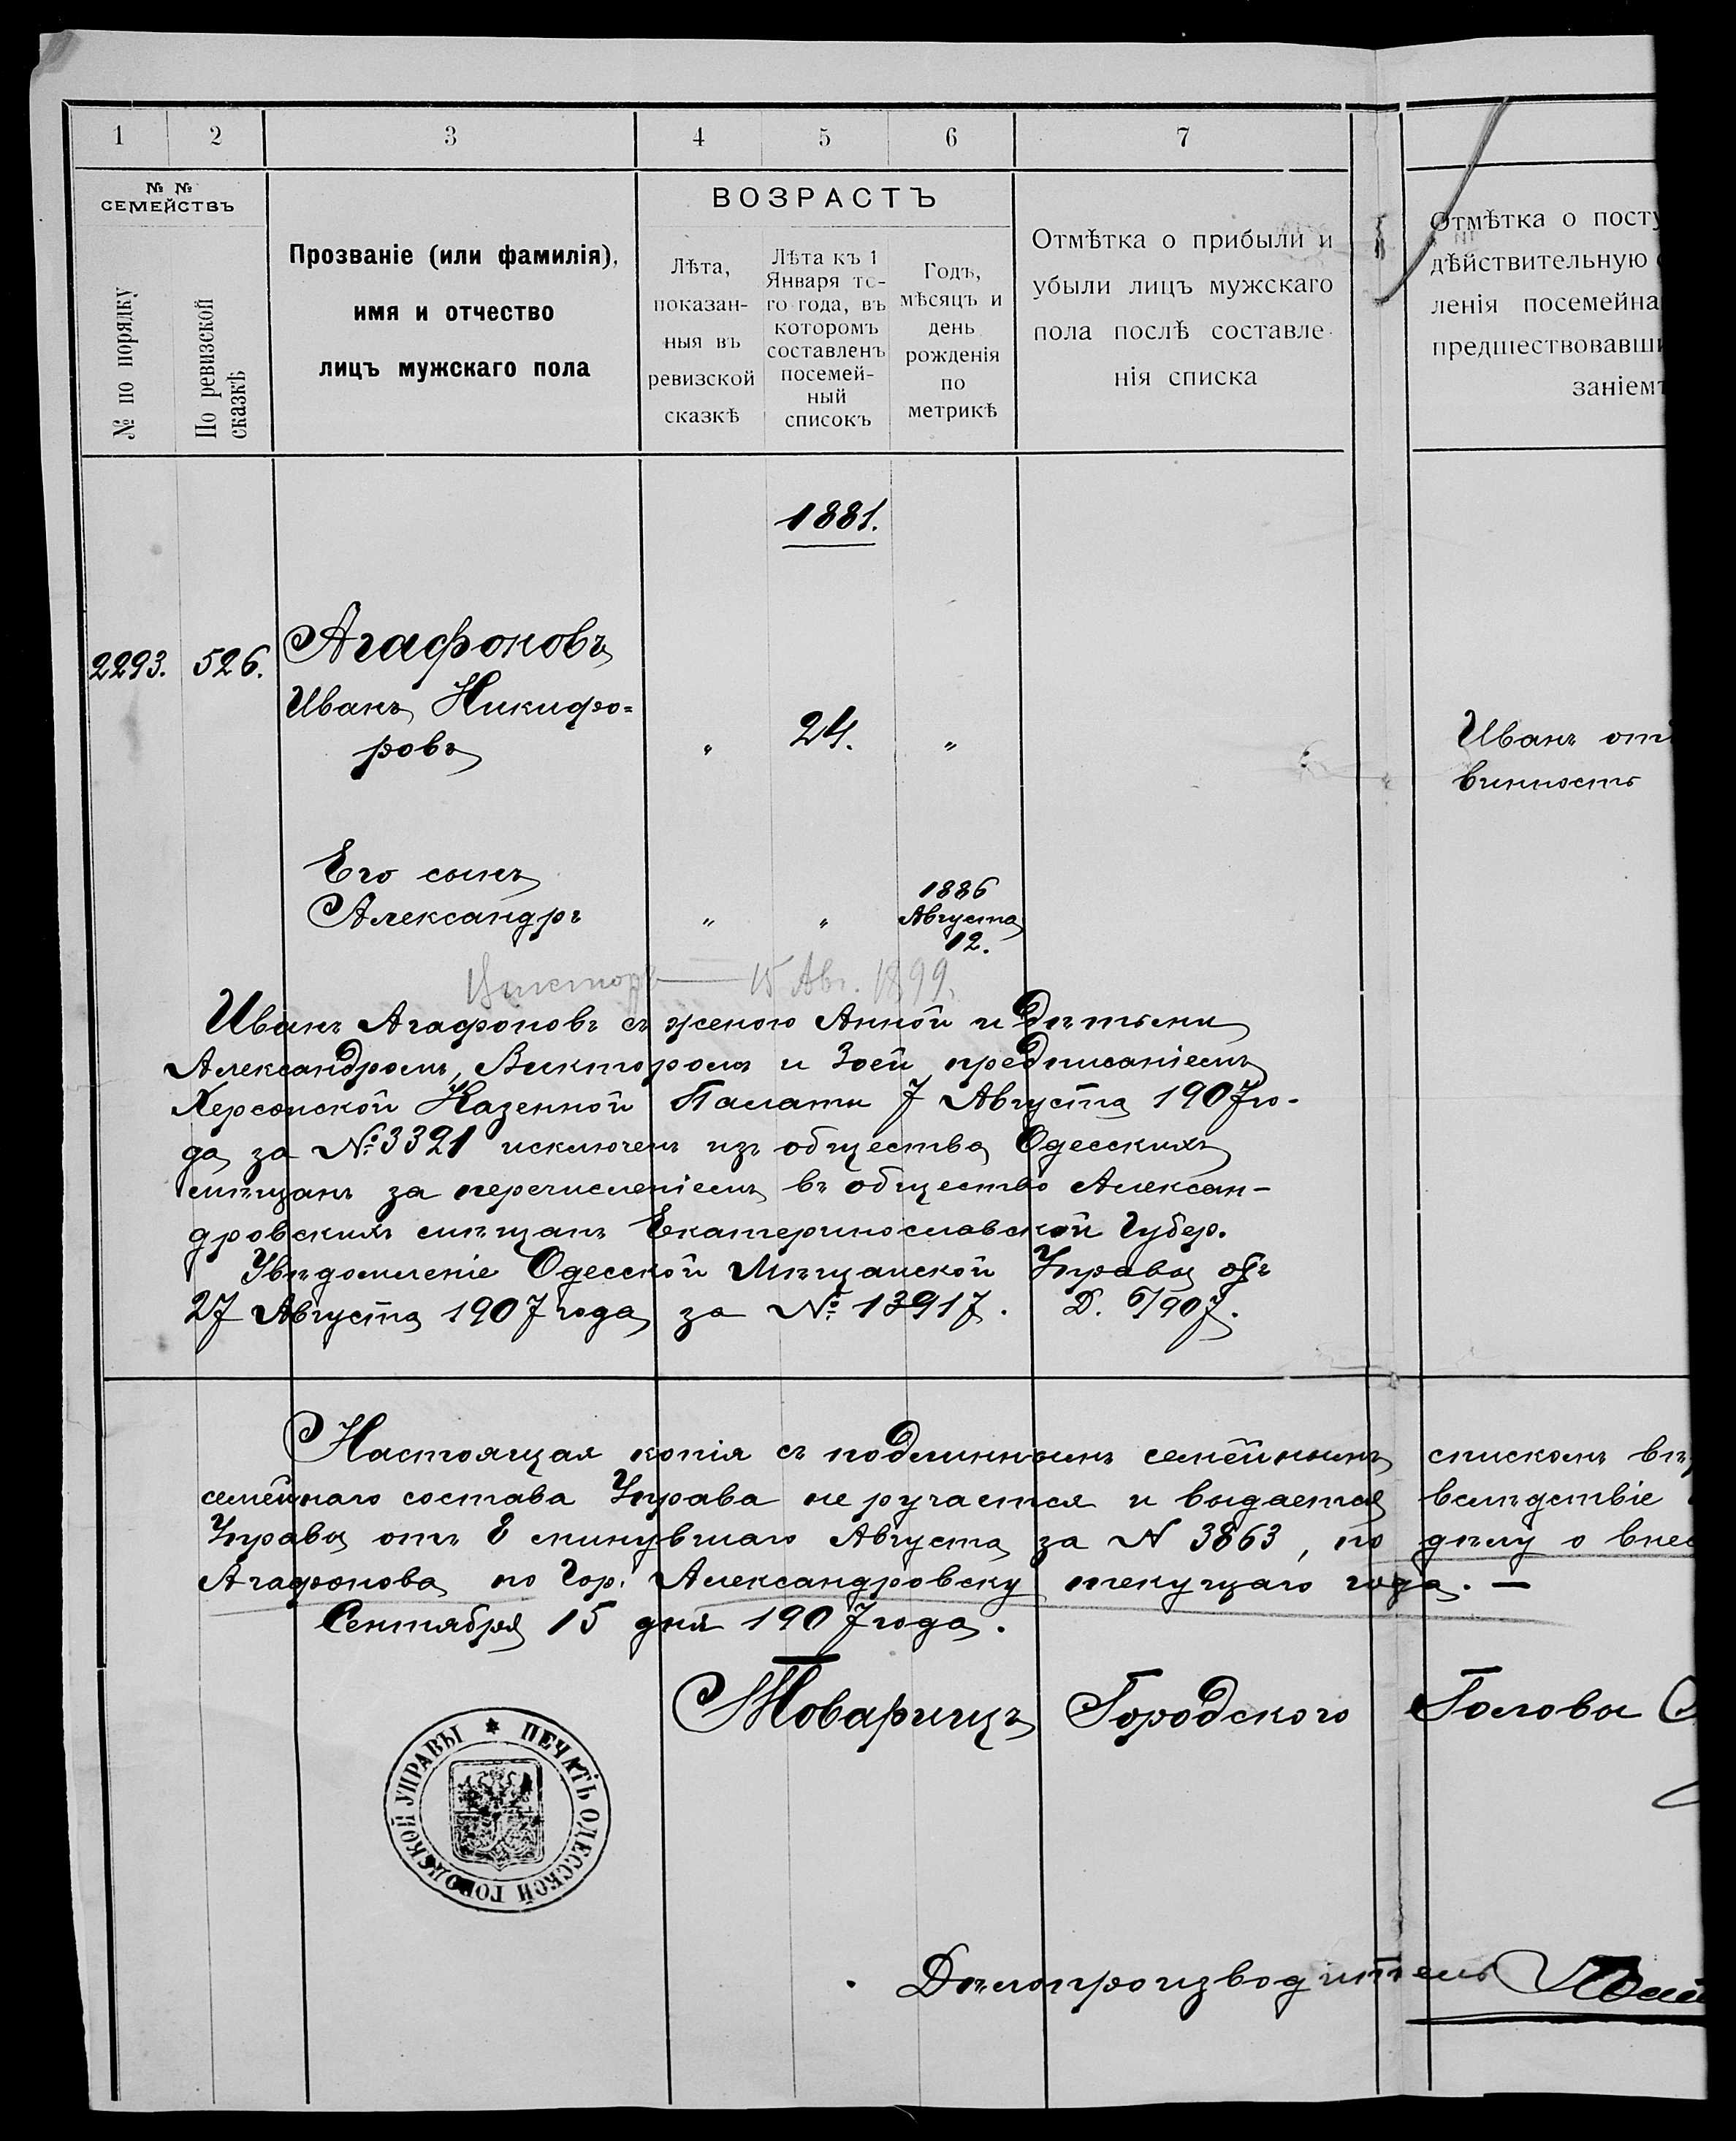 1 2 3 4 5 6 7
№ № СЕМЕЙСТВЪ
№ по порядку
По ревизской сказкѣ
Прозваніе (или фамилія),
имя и отчество
лицъ мужскаго пола
ВОЗРАСТЪ
Лѣта,
показан-
ныя въ
ревизской
сказкѣ
Лѣта къ 1
Января то-
го года, въ
которомъ
составленъ
посемей-
ный
списокъ
Годъ,
мѣсяцъ и
день
рожденія
по
метрикѣ
Отмѣтка о прибыли и
убыли лицъ мужскаго
пола послѣ составле-
нія списка
Отмѣтка о посту
дѣйствительную
ленія посемейна
предшествовавши
заніемъ
1881.
2293. 526. Агафоновъ
Иванъ Никифо-
ровъ " 24. "
Иванъ отб
винность
Его сынъ
Александръ " " 1886
Августа
12.
Викторъ — 15 Авг. 1899.
Иванъ Агафоновъ съ женою Анной и дѣтьми
Александромъ, Викторомъ и Зоей предписаніемъ
Херсонской Казенной Палаты 7 Августа 1907 го-
да за №3321 исключенъ изъ общества Одесскихъ
мѣщанъ за перечисленіемъ въ общество Алексан-
дровскихъ мѣщанъ Екатеринославской Губер.
Увѣдомленіе Одесской Мѣщанской Управы отъ
27 Августа 1907 года за № 13917. Д. 6/907.
Настоящая копія съ подлиннымъ семейнымъ спискомъ вѣр
семейнаго состава Управа не ручается и выдается вслѣдствіе
Управы отъ 8 минувшаго Августа за N 3863, по дѣлу о внес
Агафонова по Гор. Александровску текущаго года. —
Сентября 15 дня 1907 года.
Товарищъ Городского Головы
ПЕЧАТЬ ОДЕССКОЙ ГОРОДСКОЙ УПРАВЫ
Дѣлопроизводитель